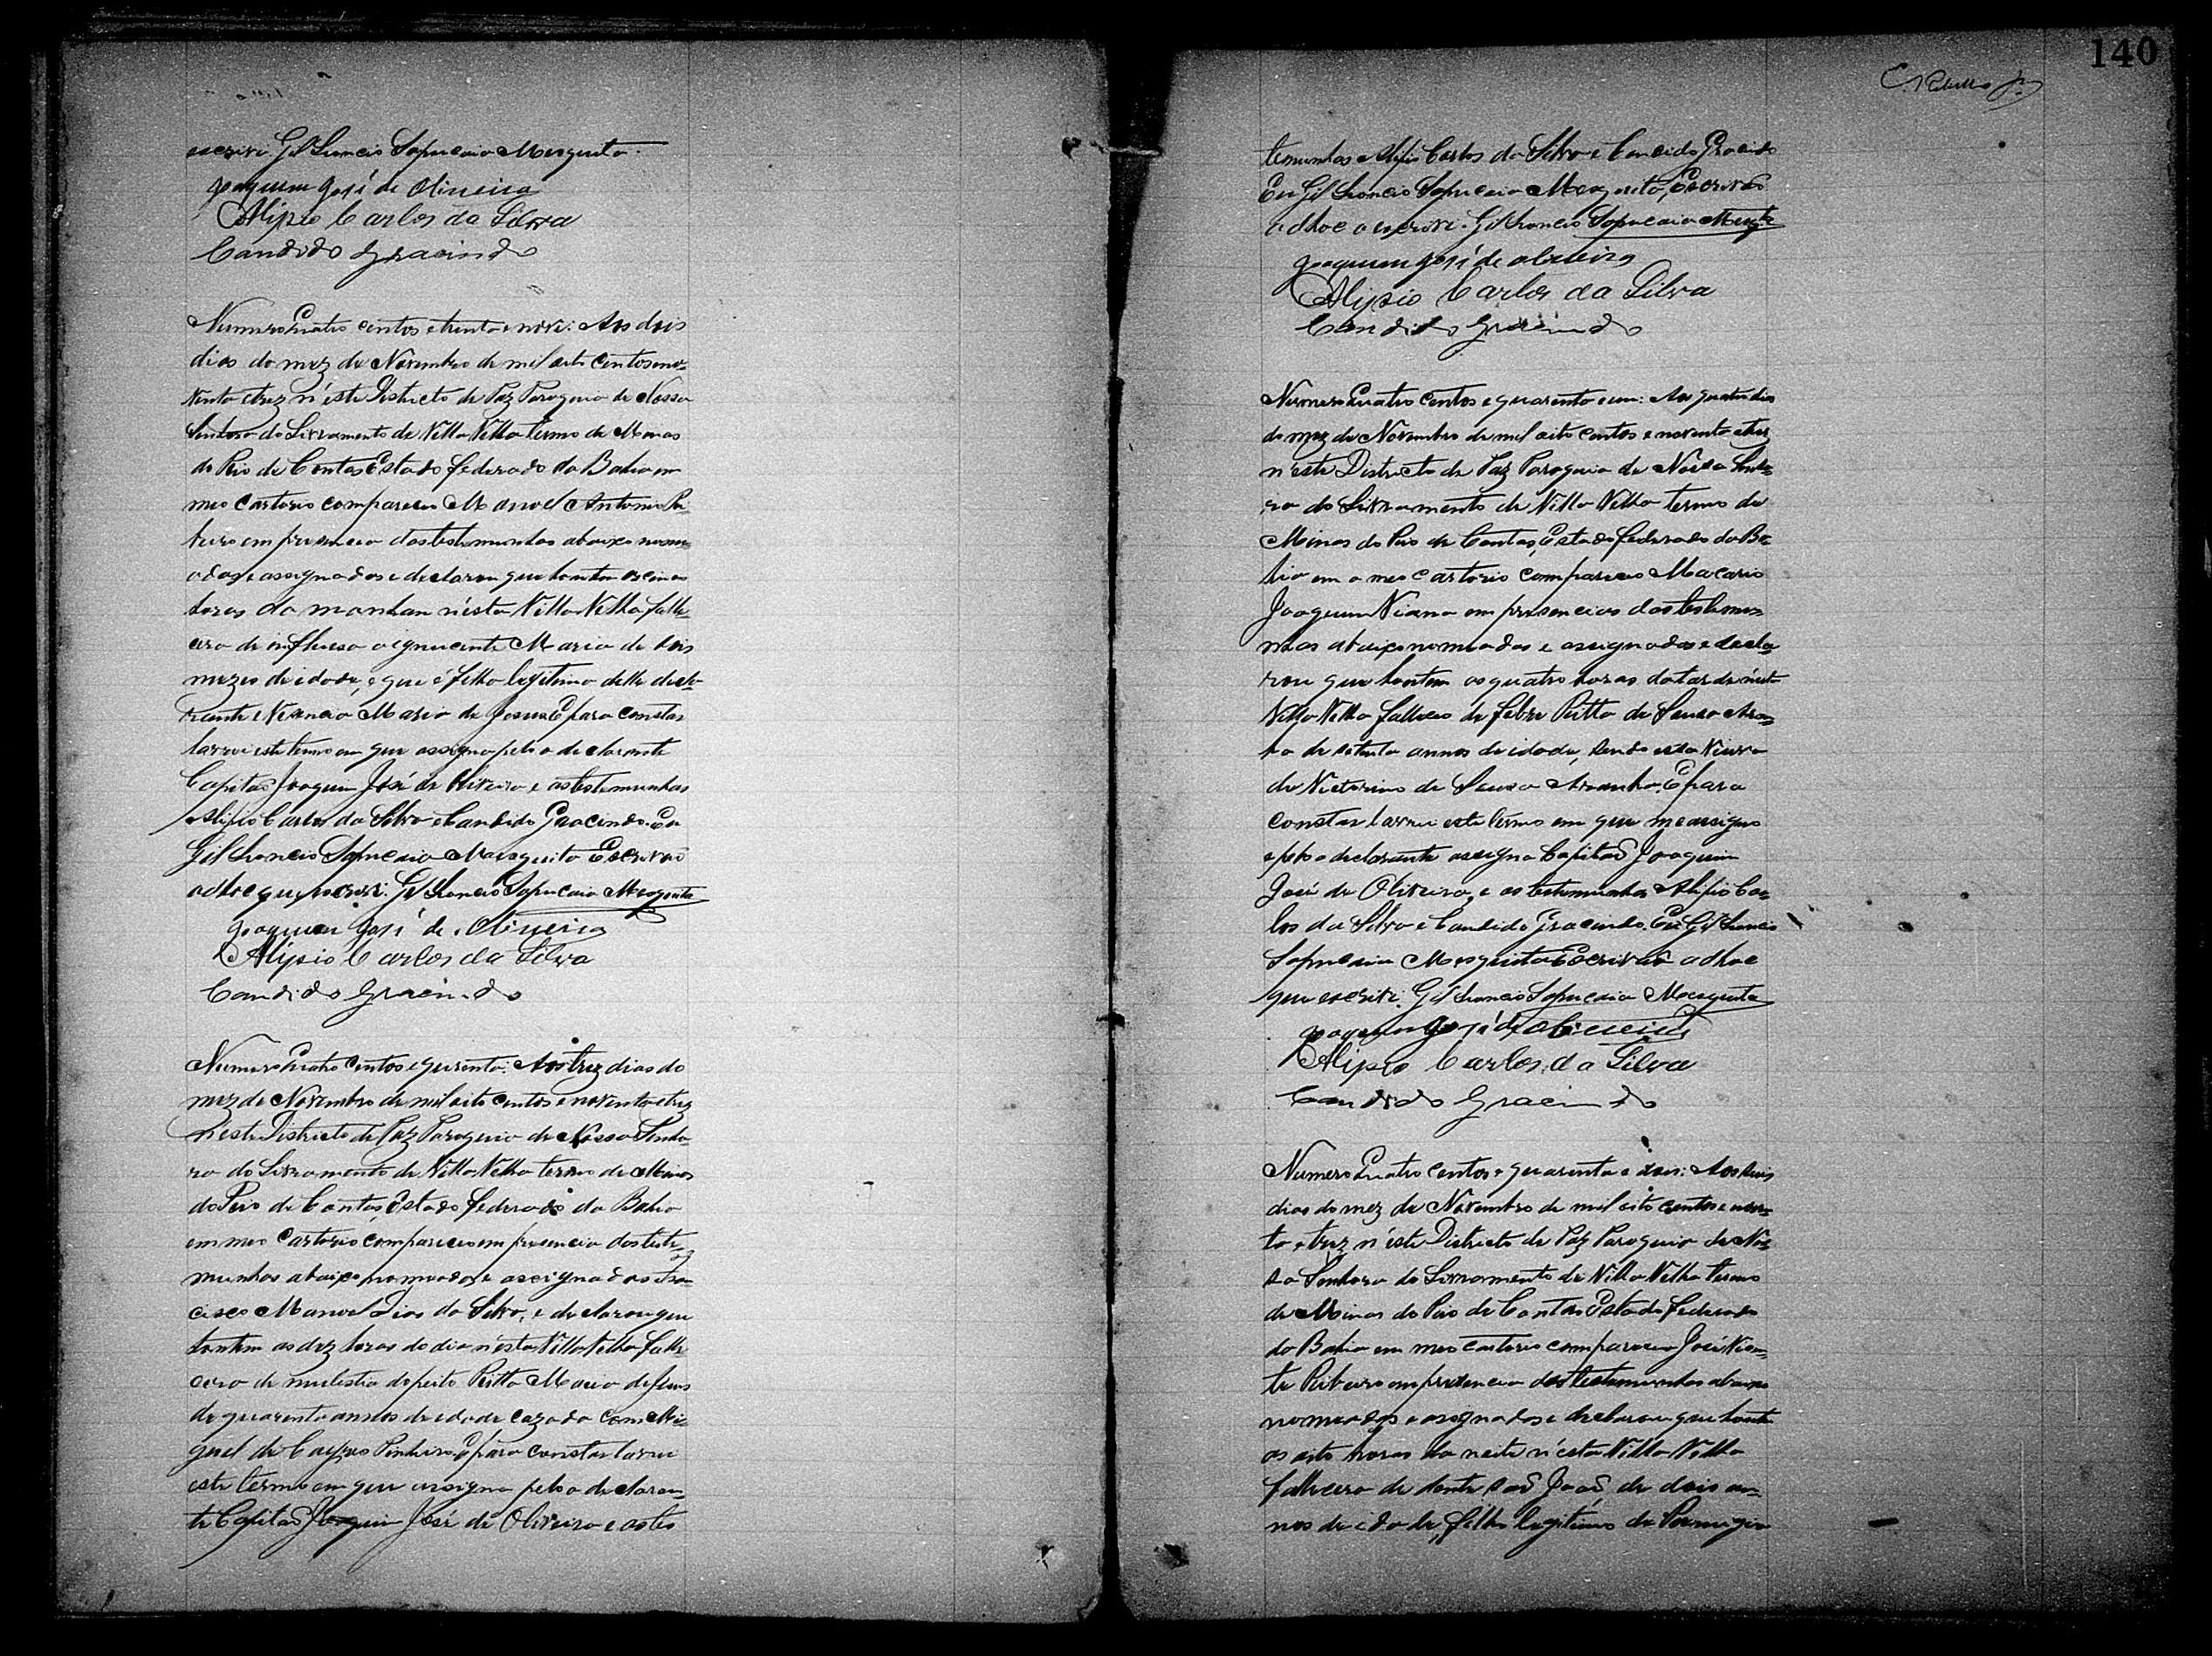 escrivi. Gil Leoncio Sapucaia Mesquita.
Joaquim José de Oliveira
Alipio Carlos da Silva
Candido Gracindo
Numero Quatro centos e trinta e nove: Aos dois
dias do mez de Novembro de mil oito centos e no-
venta e trez n'este Districto de Paz Paroquia de Nossa
Senhora do Livramento de Villa Velha termo de Minas
do Rio de Contas Estado federado da Bahia em
meo Cartorio compareceo Manoel Antonio Ri-
beiro em presencia das testemunhas abaixo nome-
adas e assignados e declarou que hontem as cinco
horas da manhan n'esta Villa Velha falle-
cera de influesa a ignucente Maria de dois
mezes de idade, e que é filha legitima delle decla-
rante e Venancia Maria de Jesus E para constar
lavrei este termo em que assigna pelo o declarante
Capitaõ Joaquim José de Oliveira e as testemunhas
Alipio Carlos da Silva e Candido Gracindo. Eu
Gil Leoncio Sapucaia Mesquita Escrivaõ
adhoc que escrevi. Gil Leoncio Sapucaia Mesquita
Joaquim José de Oliveira
Alipio Carlos da Silva
Candido Gracindo
Numero Quatro centos e quarenta: Aos trez dias do
mez de Novembro de mil oito centos e noventa e trez
n'este Districto de Paz Paroquia de Nossa Senho-
ra do Livramento de Villa Velha termo de Minas
do Rio de Contas, Estado federado da Bahia
em meo Cartorio compareceo em presencia das teste-
munhas abaixo nomeados e assignados Fran-
cisco Manoel Dias da Silva, e declarou que
hontem as dez horas do dia n'esta Villa Velha falle-
cera de mulestia do peito Ritta Maria de Jesus
de quarenta annos de idade cazada com Mi-
guel de Pinheiro. E para constar lavrei
este termo em que assigna pelo o declaran-
te Capitaõ Joaquim José de Oliveira e as tes
140
C. Rebello Jr.
temunhas Alipio Carlos da Silva e Candido Gracindo
Eu Gil Leoncio Sapucaia Mesquita, Escrivaõ
adhoc o escrevi. Gil Leoncio Sapucaia Mesqta
Joaquim José de Oliveira
Alipio Carlos da Silva
Candido Gracindo
Numero Quatro centos e quarenta e um: Aos quatro dias
do mez de Novembro de mil oito centos e noventa e trez
n'este Districto de Paz Paroquia de Nossa Senho-
ra do Livramento de Villa Velha termo de
Minas do Rio de Contas, Estado federado da Ba-
hia em o meo Cartorio compareceo Macario
Joaquim Viana em presencias das testemu-
nhas abaixo nomeados e assignados e decla-
rou que hontem as quatro horas da tarde n'esta
Villa Velha falleceo de febre Ritta de Souza Aran-
ha de setenta annos de idade, sendo esta Viuva
de Victorino de Souza Aranha. E para
constar lavrei este termo em que me assigno
e pelo o declarante assigna Capitaõ Joaquim
José de Oliveira, e as testemunhas Alipio Car-
los da Silva e Candido Gracindo. Eu Gil Leoncio
Sapucaia Mesquita Escrivaõ adhoc
que escrivi. Gil Leoncio Sapucaia Mesquita
Joaquim José de Oliveira
Alipio Carlos da Silva
Candido Gracindo
Numero Quatro centos e quarenta e dois: Aos seis
dias do mez de Novembro de mil oito centos e noven-
ta e trez n'este Districto de Paz Paroquia de Nos-
sa Senhora do Livramento de Villa Velha termo
de Minas do Rio de Contas Estado federado
da Bahia em meo cartorio compareceo José Vicen-
te Ribeiro em presencia das testemunhas abaixo
nomeados e assignados e declarou que hontem
as oito horas da noite n'esta Villa Velha
fallecera de dentiçaõ Joaõ de dois an-
nos de idade, filho legitimo de Remigio